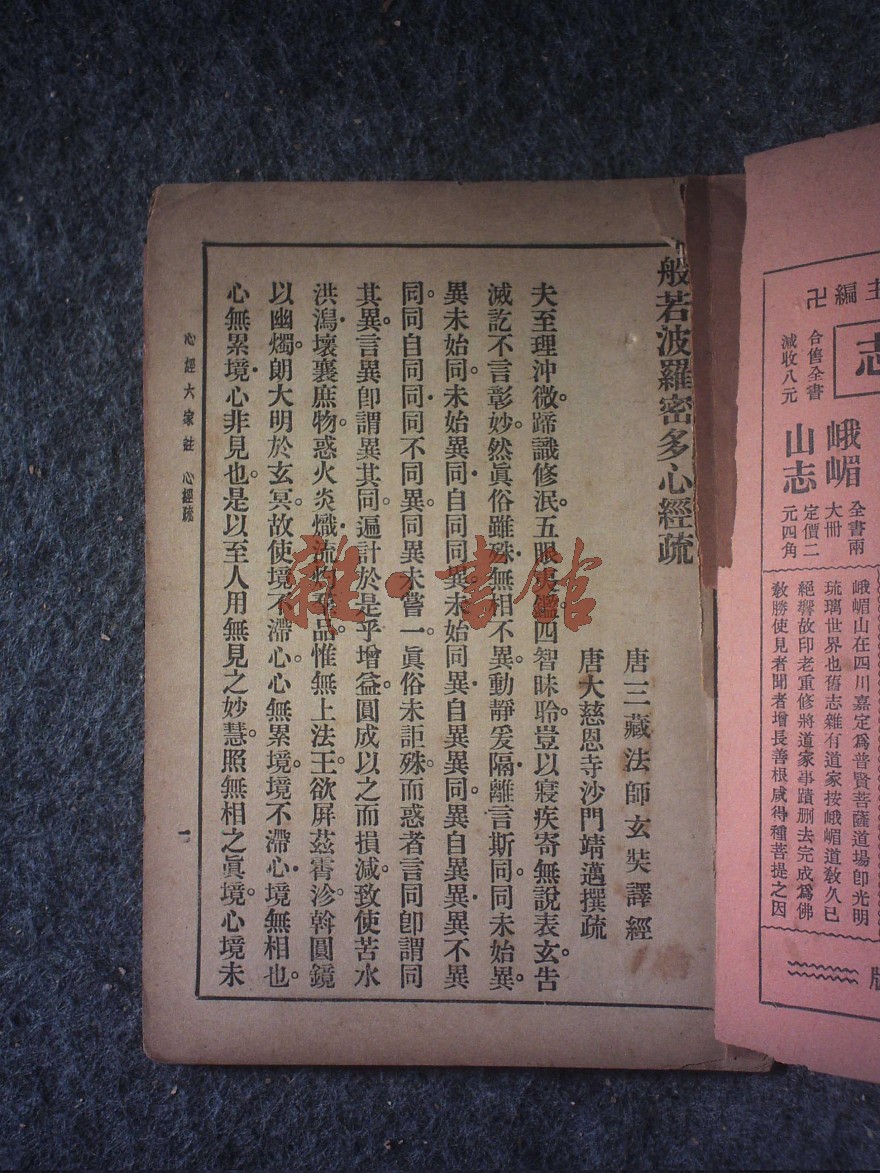 般若波羅密多心經疏
唐三藏法師玄奘譯經
唐大慈恩寺沙門靖邁撰疏
夫至理沖微。蹄識修泯。五眼夷鑑。四智昧聆。豈以寢疾寄無說表玄。告
滅訖不言彰妙。然眞俗雖殊。無相不異。動靜爰隔。離言斯同。同未始異。
異未始同。未始異同。自同同異。未始同異。自異異同。異自異異。異不異
同。同自同同。同不同異。同異未嘗一。眞俗未詎殊。而惑者言同卽謂同
其異。言異卽謂異其同。遍計於是乎增益。圓成以之而損減。致使苦水
洪潟。壞襄庶物。惑火炎熾。流灼羣品。惟無上法王。欲屏茲霄沴。斡圓鏡
以幽燭。朗大明於玄冥。故使境不滯心。心無累境。境不滯心。境無相也。
心無累境。心非見也。是以至人用無見之妙慧。照無相之眞境。心境未
心經六家註 心經疏
一
主編卍
志
合舊全書
減收八元
峨嵋
山志
全書兩
大冊
定價二
元四角
峨嵋山在四川嘉定爲普賢菩薩道場卽光明
琉璃世界也舊志雜有道家按峨嵋道敎久已
絕響故印老重修將道家事蹟删去完成爲佛
敎勝使見者聞者增長善根咸得種菩提之因
版
雜·書館